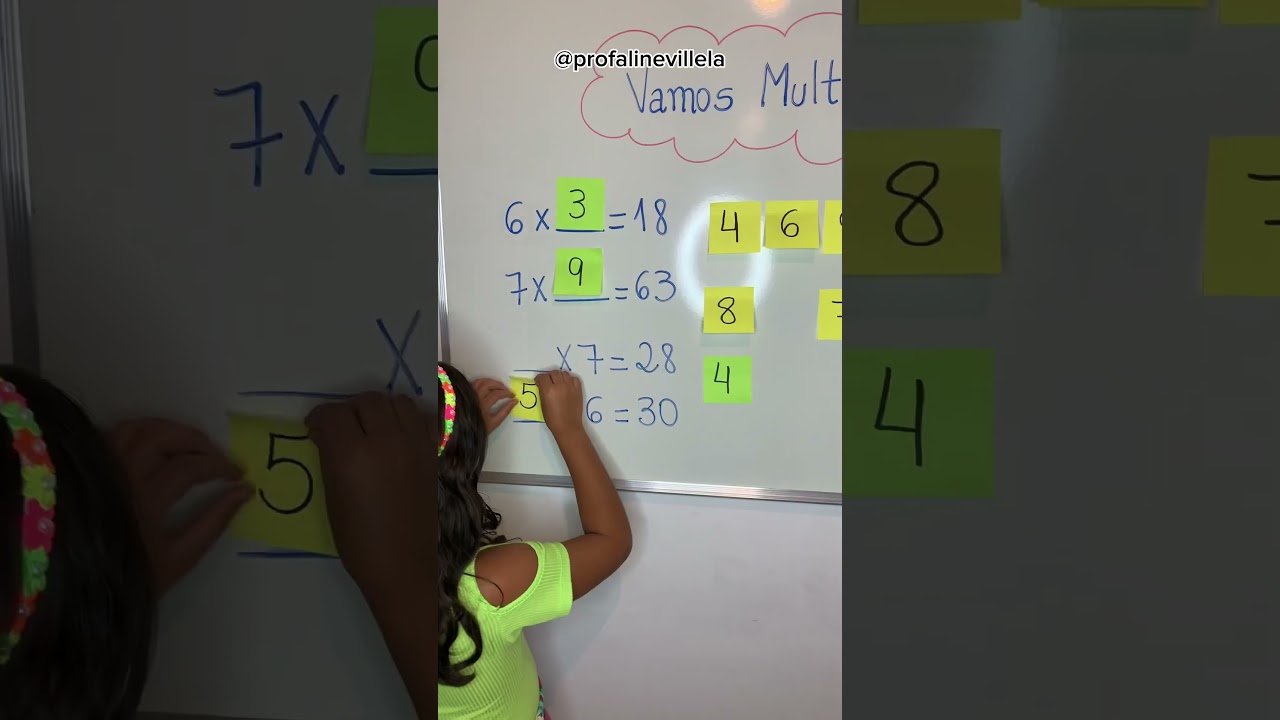 @profalinevillela
Vamos Mult
6 x 3 = 18
7 x 9 = 63
__ x 7 = 28
5 6 = 30
4 6
8 7
4
7 x
x
5
8
4